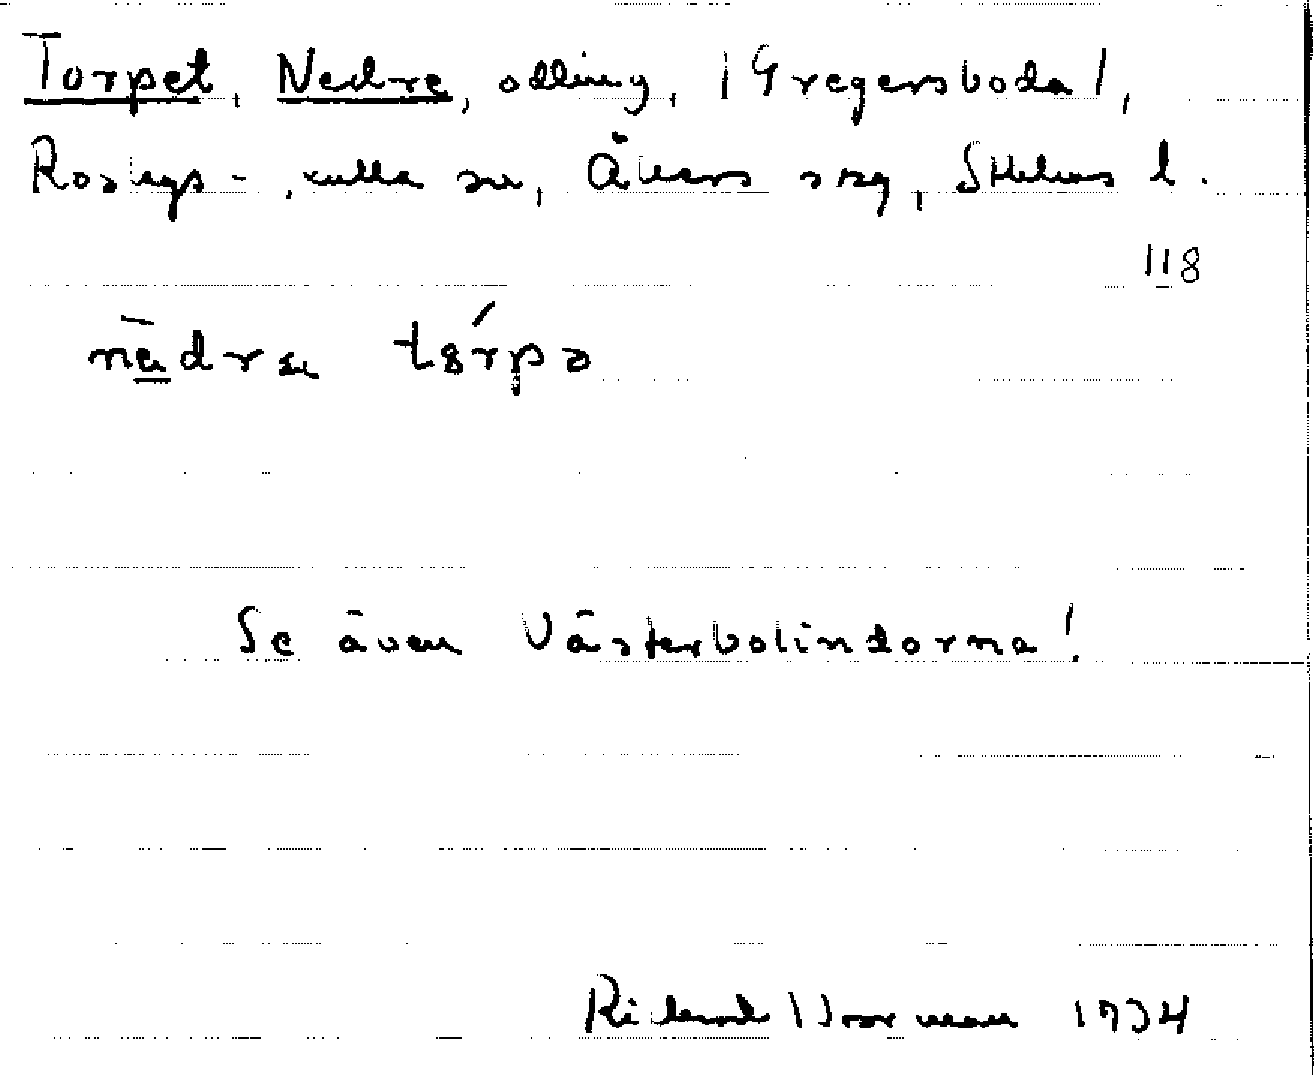 Torpet, Nedre, odling, |Gregersboda|,
Roslags-Kulla sn, Åkers skg, Sthlms l.
118
nädrə tørpə
Se även Västerbolindorna!
Rickard Norrman 1934